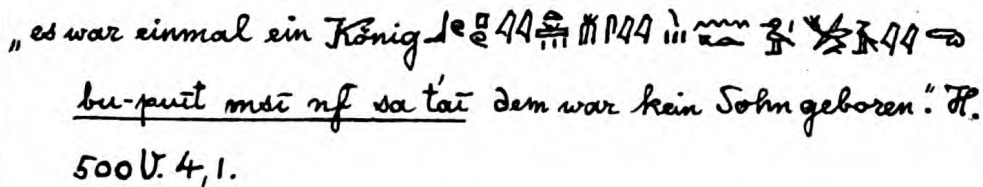 „es war einmal ein König
bu-puīt msī nf sa t́aī dem war kein Sohn geboren“. H.
500 V. 4,1.